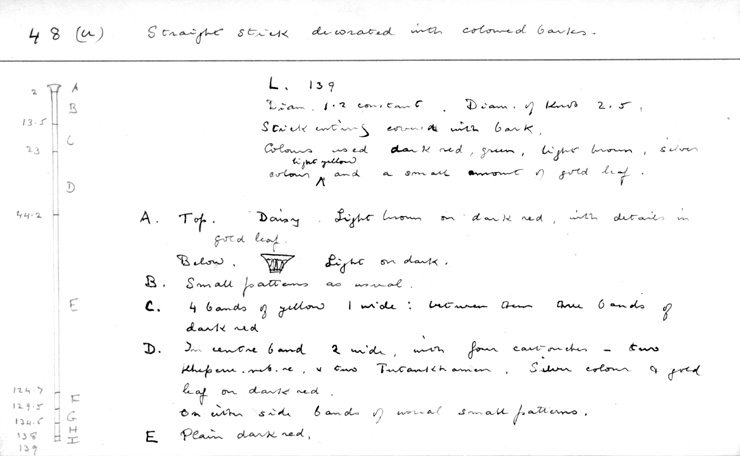 48 (u) Straight stick decorated with coloured barks.
L. 139
Diam. 1.2 constant. Diam. of Knob 2.5.
Stick entirely covered with bark.
Colours used dark red, green, light brown, silver
light yellow
colour ^ and a small amount of gold leaf.
A. Top. Daisy. Light brown on dark red, with details in
gold leaf.
Below. Light on dark.
B. Small patterns as usual.
C. 4 bands of yellow 1 wide: between them three bands of
dark red
D. In centre band 2 wide, with four cartouches - two
Kheperu.neb.re, & two Tutankhamen. Silver colour & gold
leaf on dark red.
On either side bands of usual small patterns.
E Plain dark red.
2 A
B
13.5
C
23
D
44.2
E
124.7
F
129.5
G
134.5
H
138
I
139